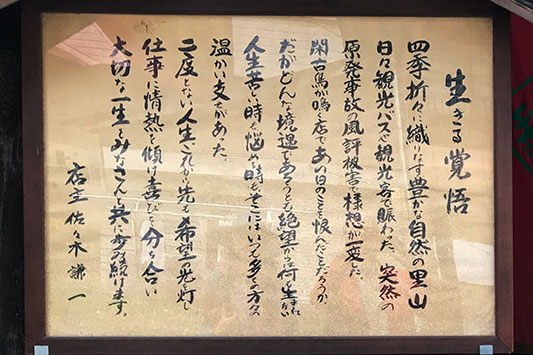 生きる覚悟
四季折々に織りなす豊かな自然の里山
日々観光バスや観光客で賑わった。突然の
原発事故の風評被害で様想が一変した。
閑古鳥が鳴く店であの日のことを恨んだことだろうか
だがどんな境遇であろうとも絶望からは何も生まれない
人生苦しい時も悩む時もそこにはいつも多くの方々の
温かい支えがあった。
二度とない人生これから先も希望の光を灯し
仕事に情熱を傾け喜びを分ち合い
大切な一生をみなさんと共に歩み続けます。
店主 佐々木謙一